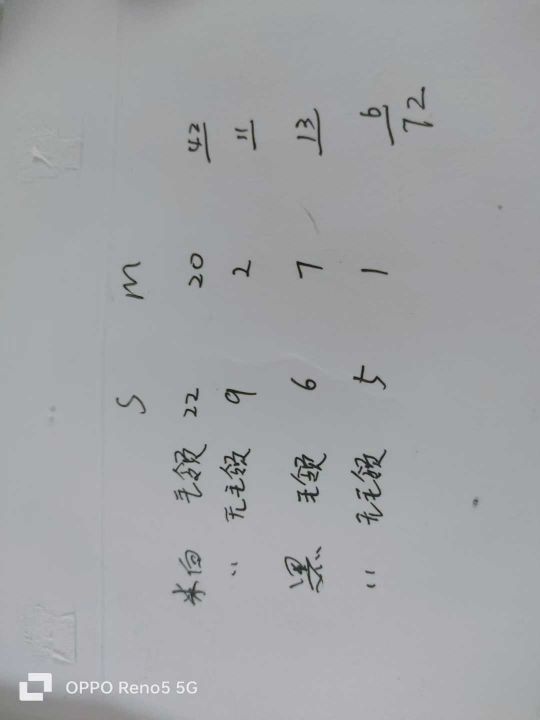 S M
米白 毛领 22 20 42
〃 无毛领 9 2 11
黑 毛领 6 7 13
〃 无毛领 5 1 6
72
OPPO Reno5 5G